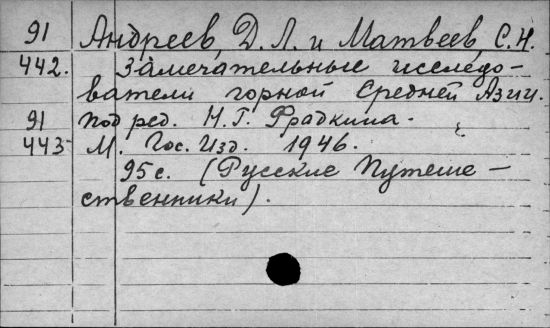 91 Андреев, Д. Л. и Матвеев, С. Н.
442. Замечательные исследо-
ватели горной Средней Азии.
91 Под ред. Н. Г. Фрадкина.
443 М. Гос. Изд. 1946.
95 с. (Русские Путеше-
ственники).